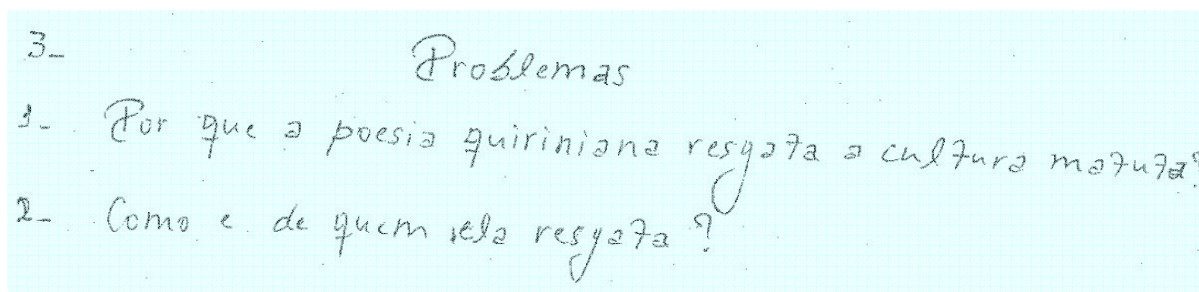 3-
Problemas
1- Por que a poesia quiriniana resgata a cultura matuta?
2- Como e de quem ela resgata?